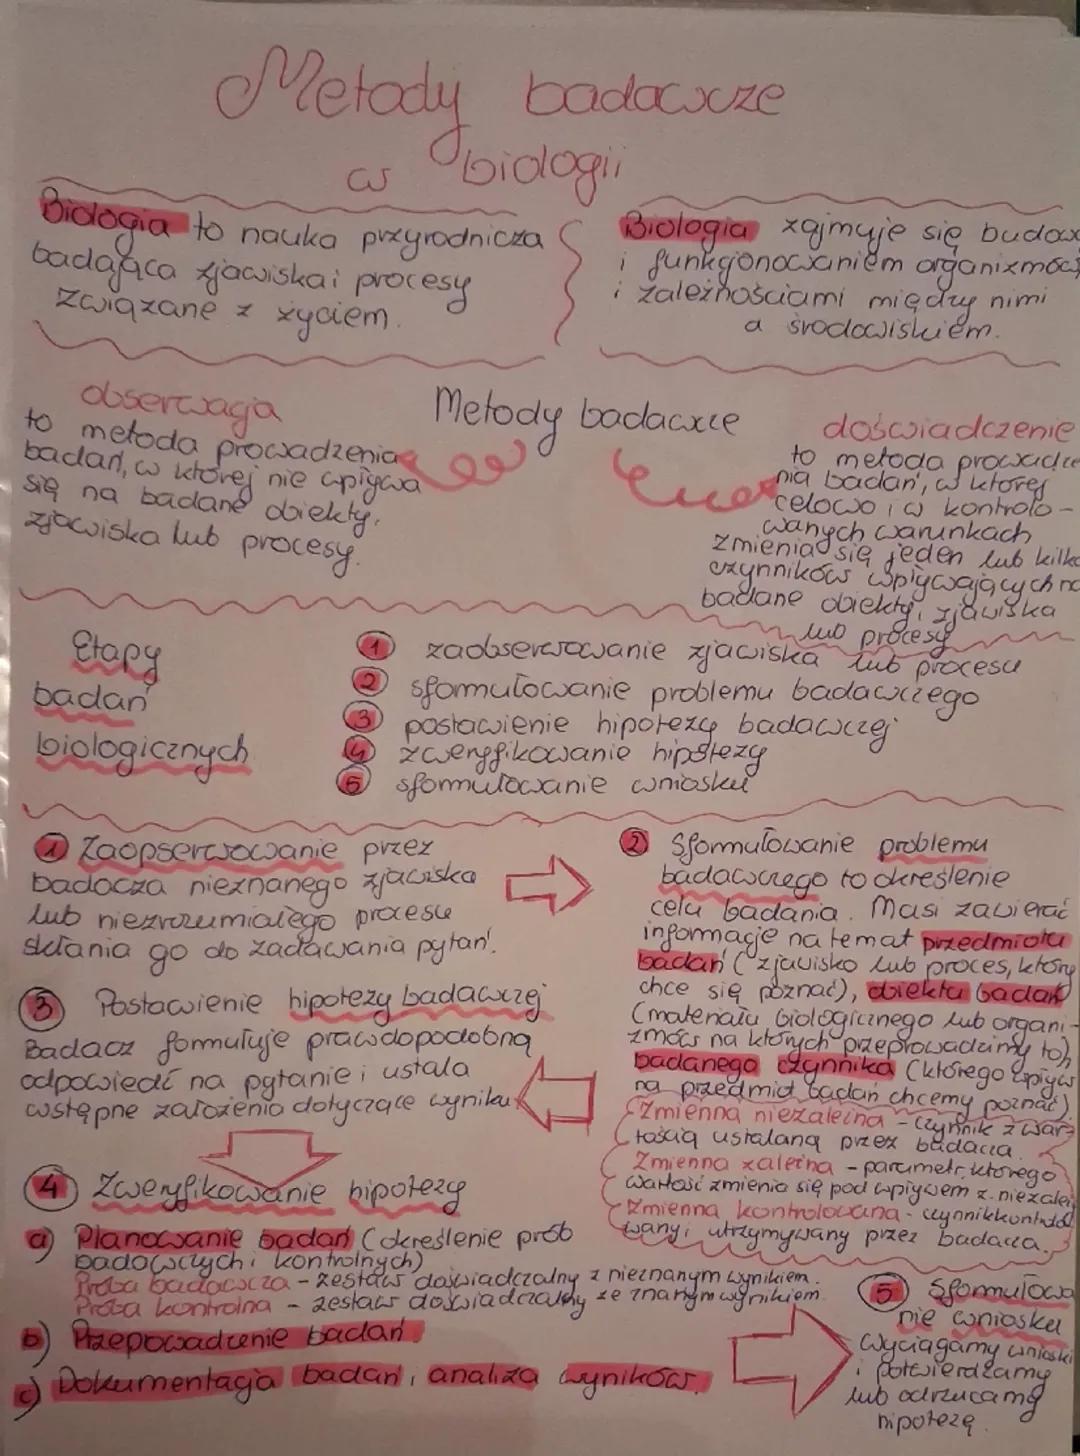 Metody badawcze
w biologii
Biologia to nauka przyrodnicza
badająca zjawiska i procesy
związane z życiem.
Biologia zajmuje się budow
i funkcjonowaniem organizmów
i zależnościami między nimi
a środowiskiem.
Metody badawcze
obserwacja
to metoda prowadzenia
badań, w której nie wpływa
się na badane obiekty,
zjawiska lub procesy.
doświadczenie
to metoda prowadze
nia badań, w której
celowo i w kontrolo-
wanych warunkach
zmienia się jeden lub kilka
czynników wpływających na
badane obiekty, zjawiska
lub procesy
Etapy
badań
biologicznych
1 zaobserwowanie zjawiska lub procesu
2 sformułowanie problemu badawczego
3 postawienie hipotezy badawczej
4 zweryfikowanie hipotezy
5 sformułowanie wniosku
1 Zaopserwowanie przez
badacza nieznanego zjawiska
lub niezrozumiałego procesu
skłania go do zadawania pytań.
2 Sformułowanie problemu
badawczego to określenie
celu badania. Masi zawierać
informacje na temat przedmiotu
badań (zjawisko lub proces, który
chce się poznać), obiektu badań
(materiału biologicznego lub organi-
zmów na których przeprowadzimy to),
badanego czynnika (którego wpływ
na przedmiot badań chcemy poznać).
Zmienna niezależna - czynnik z war-
tością ustalaną przez badacza.
Zmienna zależna - parametr, którego
wartość zmienia się pod wpływem z. niezależ
Zmienna kontrolowana - czynnik kontrolo
wany i utrzymywany przez badacza.
3 Postawienie hipotezy badawczej
Badacz formułuje prawdopodobną
odpowiedź na pytanie i ustala
wstępne założenia dotyczące wyniku
4 Zweryfikowanie hipotezy
a) Planowanie badań (określenie prób
badawczych i kontrolnych)
Próba badawcza - zestaw doświadczalny z nieznanym wynikiem.
Próba kontrolna - zestaw doświadczalny ze znanym wynikiem.
b) Przeprowadzenie badań
c) Dokumentacja badań i analiza wyników.
5 Sformułowa
nie wniosku
Wyciągamy wnioski
i potwierdzamy
lub odrzucamy
hipotezę.